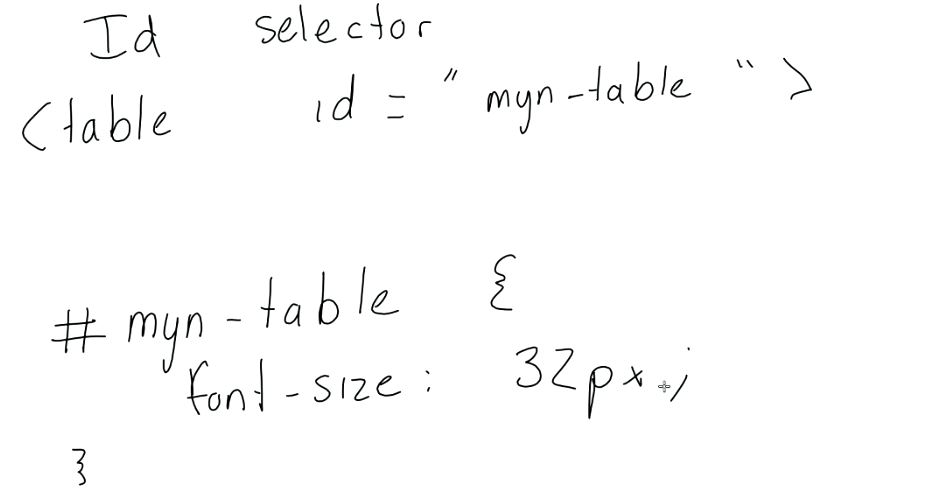 Id selector
<table id = "myn-table">
# myn-table {
font-size: 32px;
}